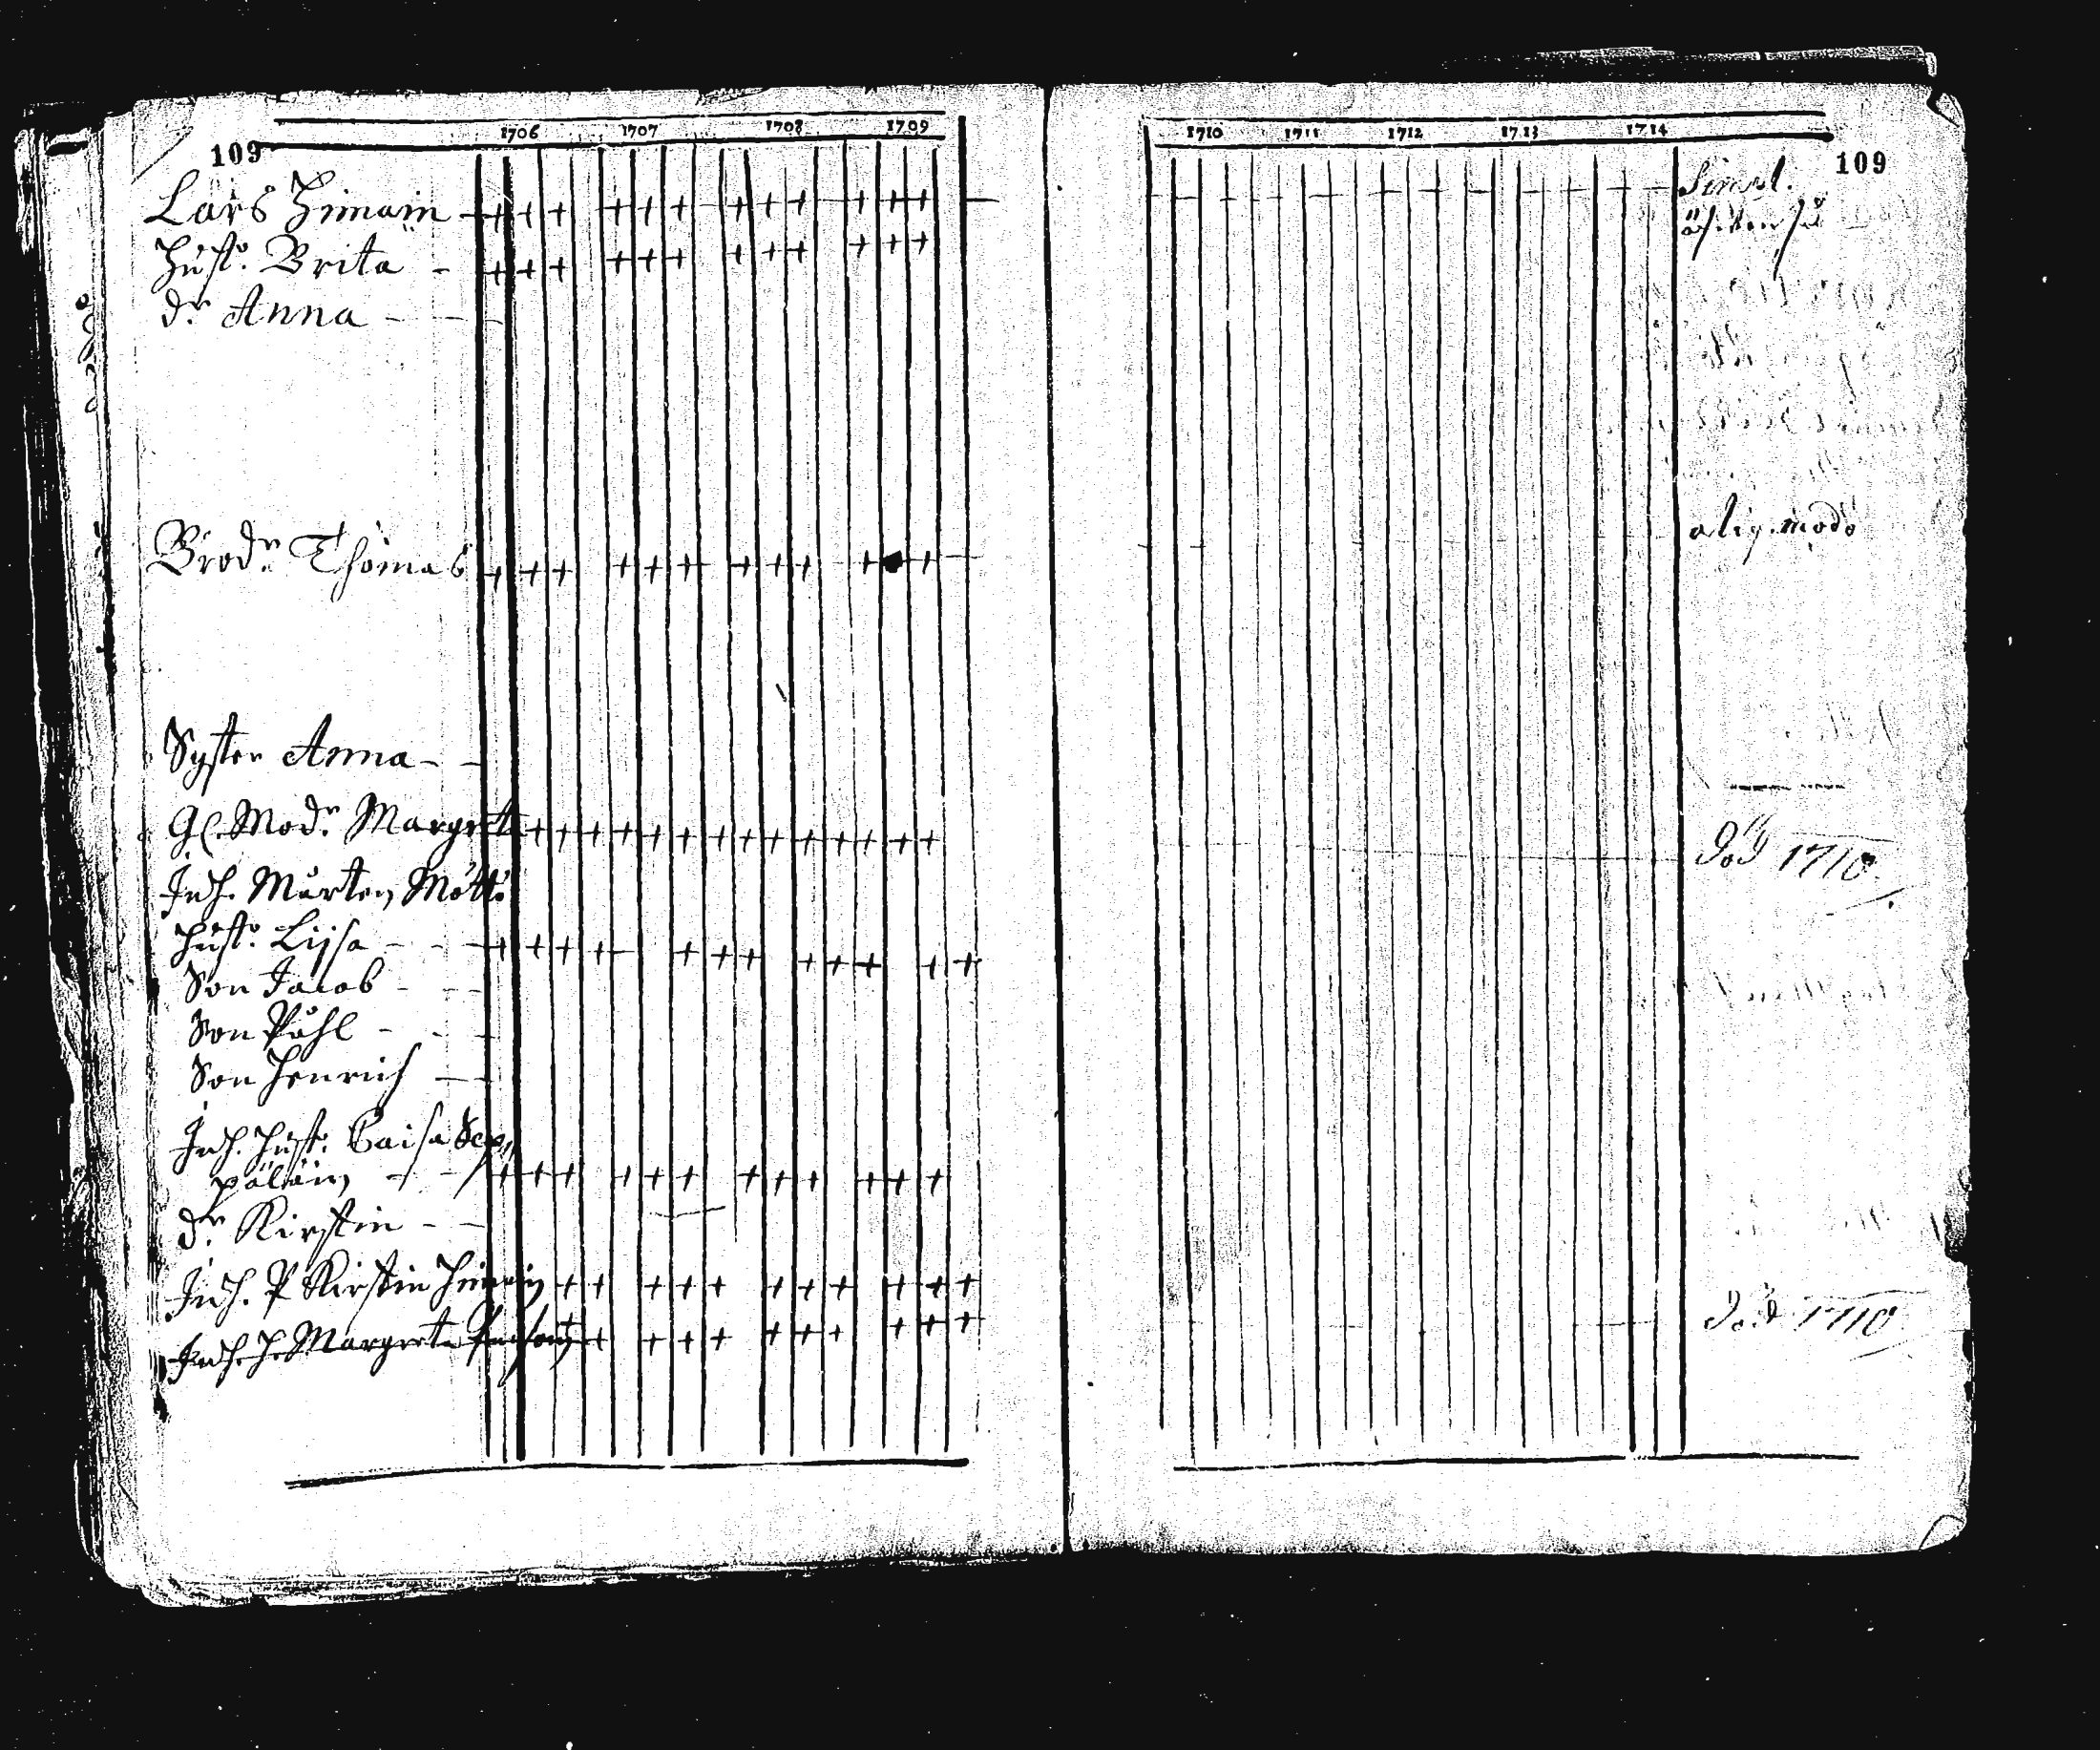 109
1706 1707 1708 1709
Lars Himain
Hust. Brita
dr. Anna
Brodr. Thomas
Syster Anna
Gl. Modr. Margreta
Inh. Mårten Mött:
Hust. Lijsa
Son Jacob
Son Påhl
Son Henrich
Inh. Hust. Caisa Sep,,
päläin
dr. Kirstin
Inh. P Kirstin Himain
Inh. H. Margreta
1710 1711 1712 1713 1714
109
Simpl.
aliq. modo
Död 1710
Död 1710